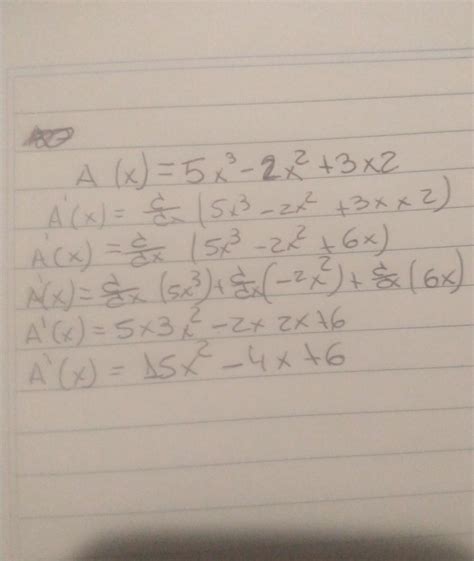 A (x) = 5x³ - 2x² + 3x2
A'(x) = d/dx (5x³ - 2x² + 3x x 2)
A'(x) = d/dx (5x³ - 2x² + 6x)
A'(x) = d/dx (5x³) + d/dx (-2x²) + d/dx (6x)
A'(x) = 5x3x² - 2x 2x + 6
A'(x) = 15x² - 4x + 6